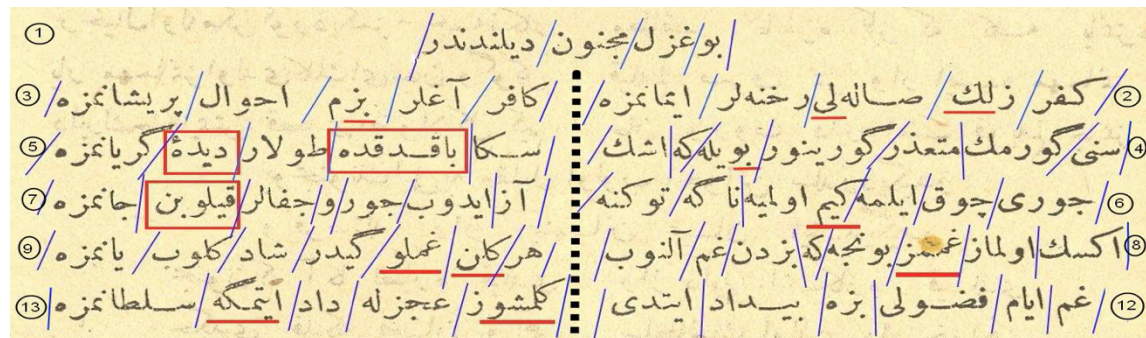 ① بو غزل مجنون دیلندندر
② كفر زلك صاله‌لی رخنه‌لر ایمانمزه
③ كافر آغلار بزم احوال پریشانمزه
④ سنی گورمك متعذر گورینور بویله كه اشك
⑤ سكا باقدقده طولار دیدۀ گریانمزه
⑥ جوری چوق ایلمه كیم اولمیه ناگه توكنه
⑦ آز ایدوب جور و جفالر قیلوبن جانمزه
⑧ اكسك اولماز غممز بونجه كه بزدن غم آلنوب
⑨ هر كان غملو گیدر شاد كلوب یانمزه
⑫ غم ایام فضولی بزه بیداد ایتدی
⑬ كلمشوز عجزله داد ایتمگه سلطانمزه